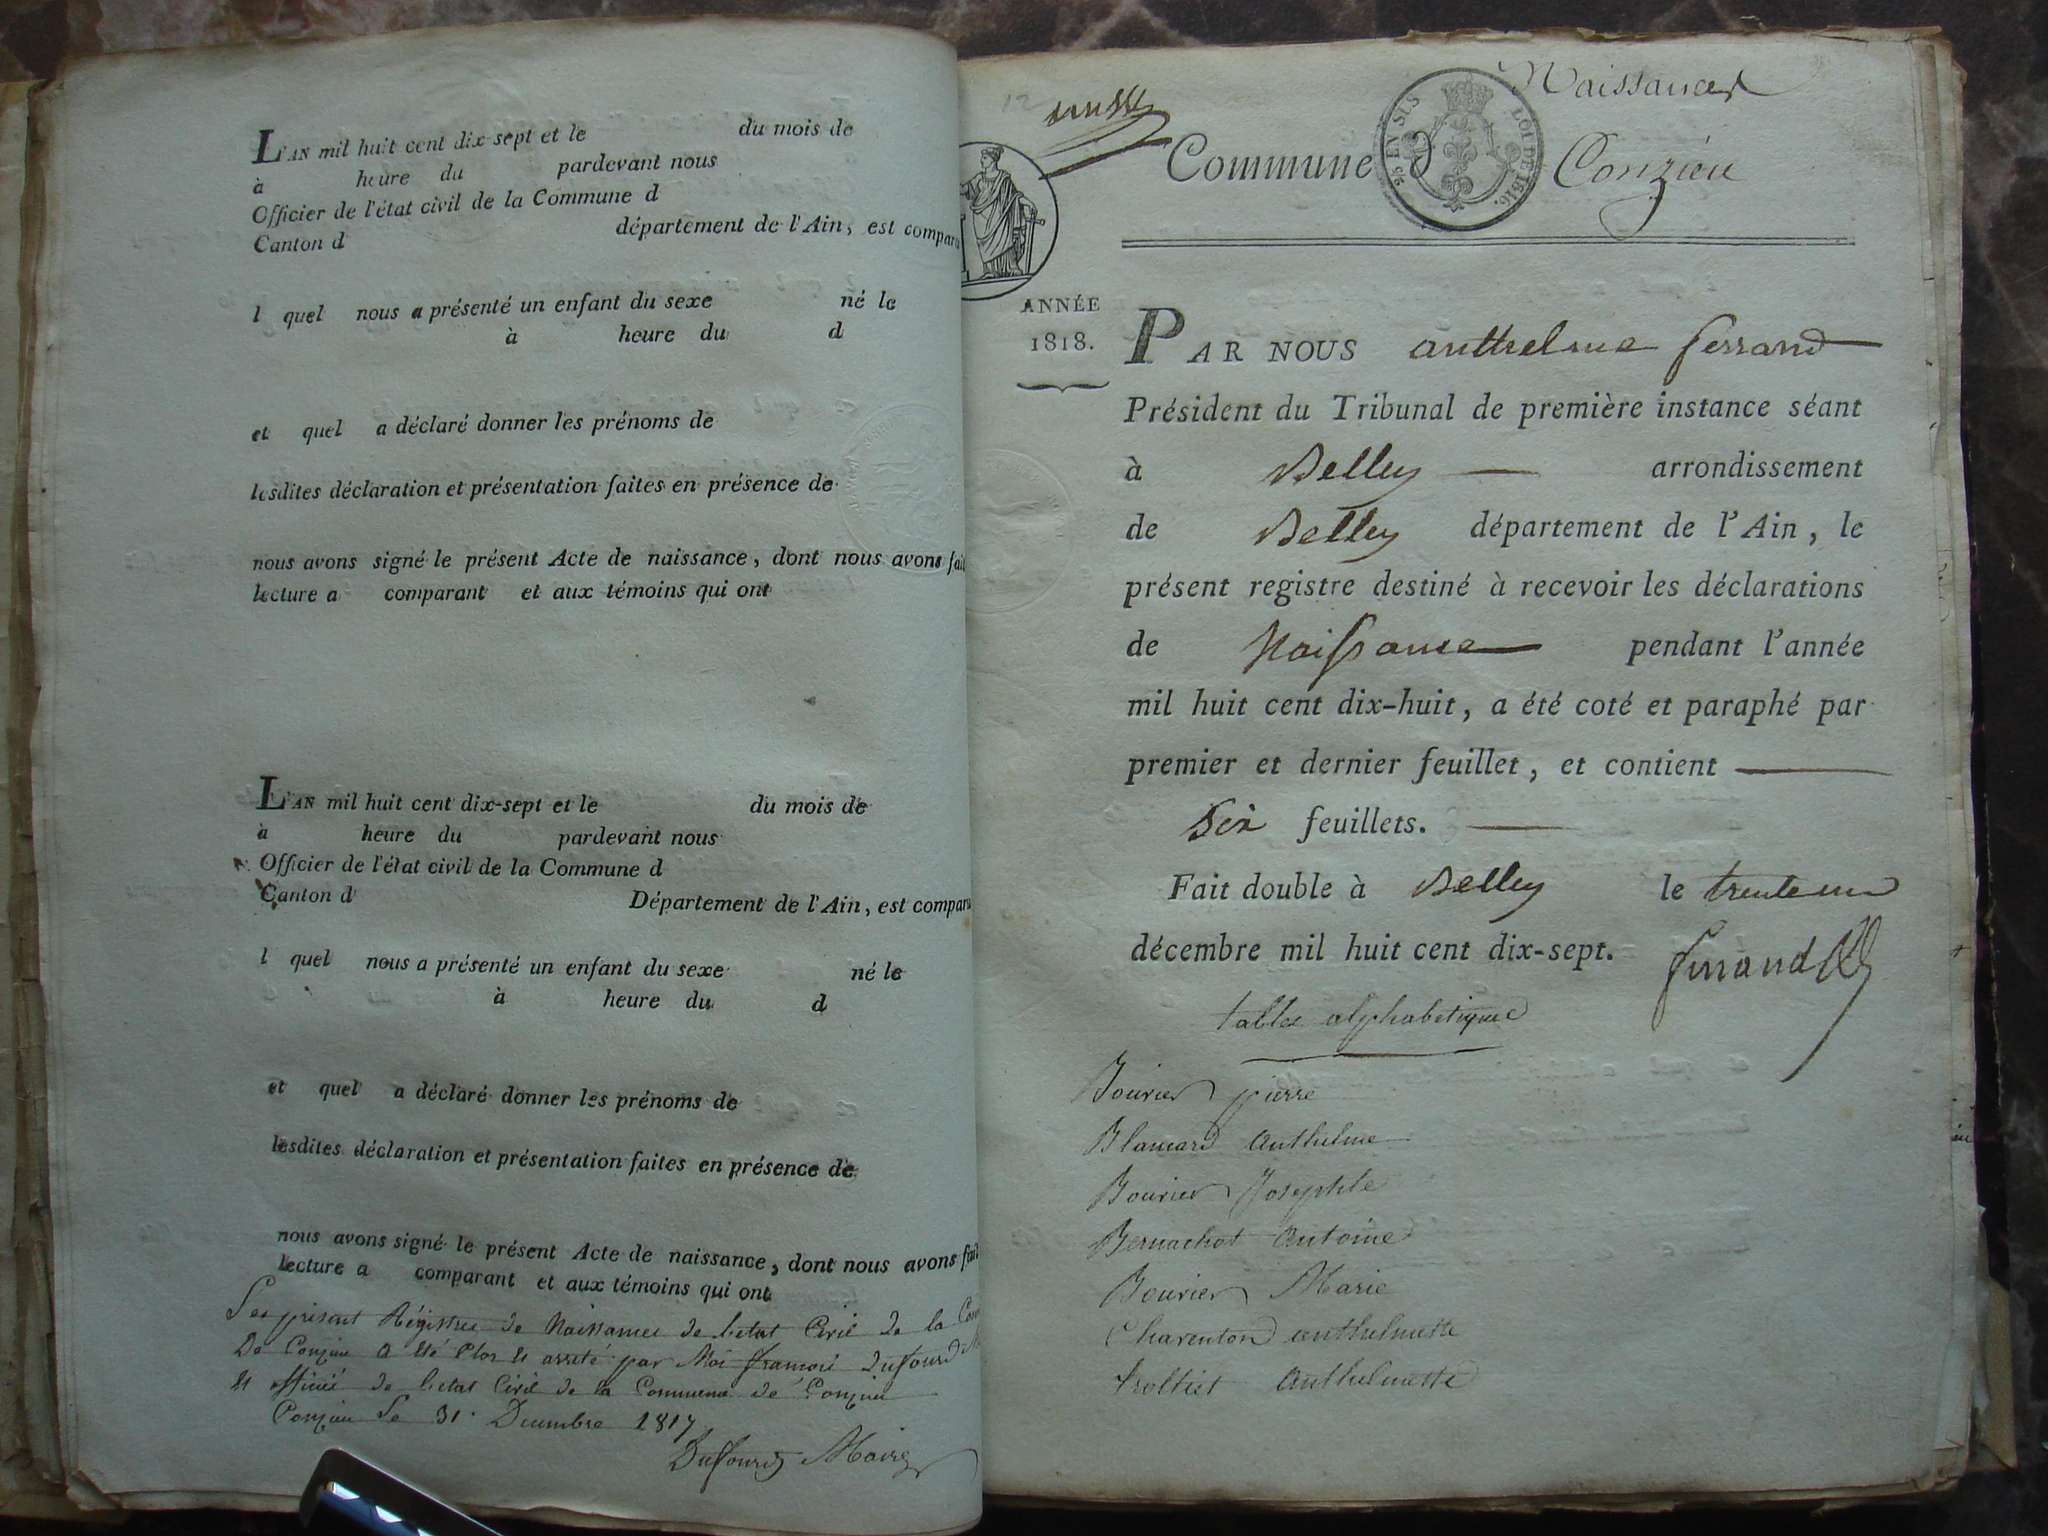 L'AN mil huit cent dix-sept et le du mois de
à heure du pardevant nous
Officier de l'état civil de la Commune d
Canton d département de l'Ain, est comparu
l quel nous a présenté un enfant du sexe né le
à heure du d
et quel a déclaré donner les prénoms de
lesdites déclaration et présentation faites en présence de
nous avons signé le présent Acte de naissance, dont nous avons fait
lecture a comparant et aux témoins qui ont
L'AN mil huit cent dix-sept et le du mois de
à heure du pardevant nous
Officier de l'état civil de la Commune d
Canton d Département de l'Ain, est comparu
l quel nous a présenté un enfant du sexe né le
à heure du d
et quel a déclaré donner les prénoms de
lesdites déclaration et présentation faites en présence de
nous avons signé le présent Acte de naissance, dont nous avons fait
lecture a comparant et aux témoins qui ont
présent Régistre de Naissances de letat Civil de la
De Conzieu a été Clos et arreté par Moi francois Dufourd
et officié de letat Civil de la Commune de Conzieu
Conzieu Le 31. Decembre 1817
Dufourd Maire
12
Naissances
Commune d Conzieu
EN SUS
LOI DE 1816.
ANNÉE
1818.
PAR NOUS anthelme ferrand
Président du Tribunal de première instance séant
à Belley arrondissement
de Belley département de l'Ain, le
présent registre destiné à recevoir les déclarations
de Naissance pendant l'année
mil huit cent dix-huit, a été coté et paraphé par
premier et dernier feuillet, et contient
Six feuillets.
Fait double à Belley le trente un
décembre mil huit cent dix-sept.
ferrand
tables alphabetique
Bouvier pierre
Blancard anthelme
Bouvier Josephte
Bernachot antoine
Bouvier Marie
Charenton anthelmette
trolliet anthelmette